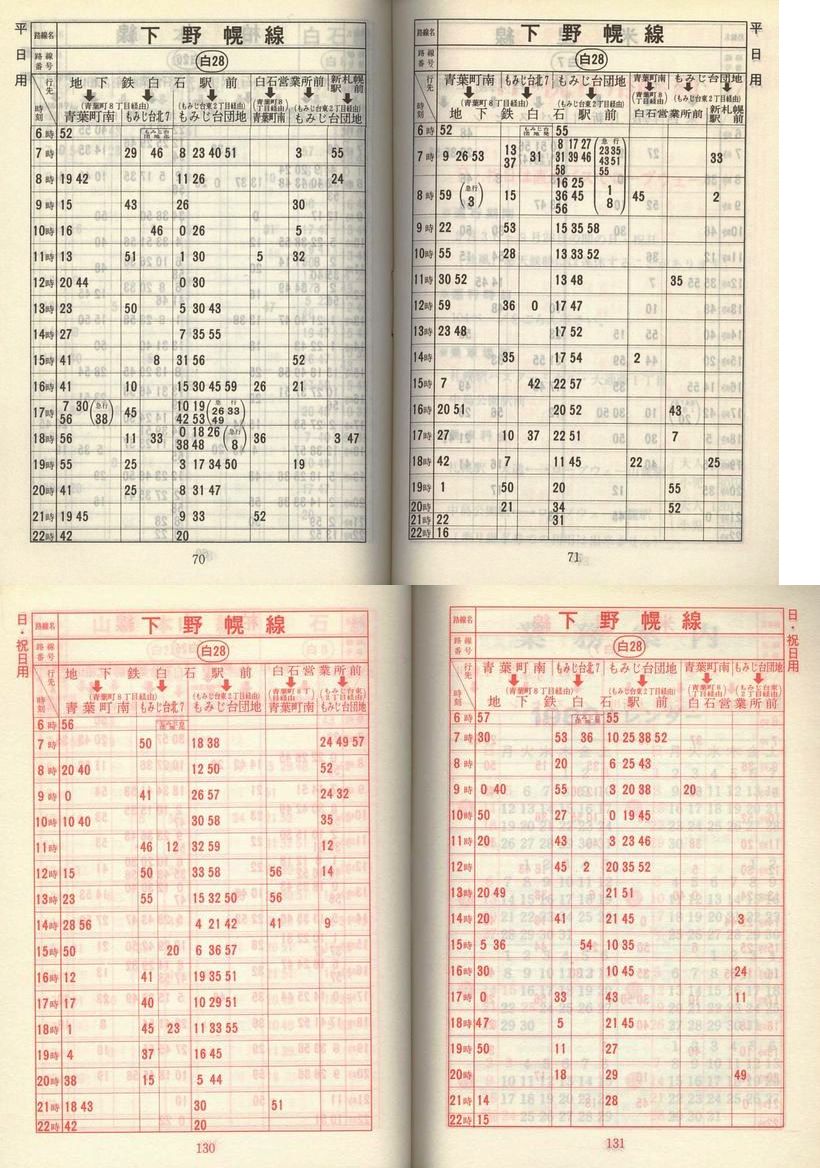 平日用
路線名 下野幌線
路線番号 白28
行先 地下鉄白石駅前 白石営業所前 新札幌駅前
(青葉町8丁目経由) (もみじ台東2丁目経由) (青葉町8丁目経由) (もみじ台東2丁目経由)
時刻 青葉町南 もみじ台北7 もみじ台団地 青葉町南 もみじ台団地
6時 52
7時 29 46 8 23 40 51 3 55
8時 19 42 11 26 24
9時 15 43 26 30
10時 16 46 0 26 5
11時 13 51 1 30 5 32
12時 20 44 0 30
13時 23 50 5 30 43
14時 27 7 35 55
15時 41 8 31 56 52
16時 41 10 15 30 45 59 26 21
17時 7 30 56 (急行 38) 45 10 19 42 53 (急行 26 33 49)
18時 56 11 33 0 18 26 38 48 (急行 8) 36 3 47
19時 55 25 3 17 34 50 19
20時 41 25 8 31 47
21時 19 45 9 33 52
22時 42 20
70
平日用
路線名 下野幌線
路線番号 白28
行先 青葉町南 もみじ台北7 もみじ台団地 青葉町南 もみじ台団地
(青葉町8丁目経由) (もみじ台東2丁目経由) (青葉町8丁目経由) (もみじ台東2丁目経由)
時刻 地下鉄白石駅前 白石営業所前 新札幌駅前
6時 52 55
7時 9 26 53 13 37 31 8 17 27 31 39 46 58 (急行 23 35 43 51 55) 33
8時 59 (急行 3) 15 16 25 36 45 56 (1 8) 45 2
9時 22 53 15 35 58
10時 55 28 13 33 52
11時 30 52 13 48 35
12時 59 36 0 17 47
13時 23 48 17 52
14時 35 17 54 2
15時 7 42 22 57
16時 20 51 20 52 43
17時 27 10 37 22 51 7
18時 42 7 11 45 22 25
19時 1 50 20 55
20時 21 34 52
21時 22 31
22時 16
71
日・祝日用
路線名 下野幌線
路線番号 白28
行先 地下鉄白石駅前 白石営業所前
(青葉町8丁目経由) (もみじ台東2丁目経由) (青葉町8丁目経由) (もみじ台東2丁目経由)
時刻 青葉町南 もみじ台北7 もみじ台団地 青葉町南 もみじ台団地
6時 56
7時 50 18 38 24 49 57
8時 20 40 12 50 52
9時 0 41 26 57 24 32
10時 10 40 30 58 35
11時 46 12 32 59 12
12時 15 50 33 58 56 14
13時 23 55 15 32 50 56
14時 28 56 4 21 42 41 9
15時 50 20 6 36 57
16時 12 41 19 35 51
17時 17 40 10 29 51
18時 1 45 23 11 33 55
19時 4 37 16 45
20時 38 15 5 44
21時 18 43 30 51
22時 42 20
130
日・祝日用
路線名 下野幌線
路線番号 白28
行先 青葉町南 もみじ台北7 もみじ台団地 青葉町南 もみじ台団地
(青葉町8丁目経由) (もみじ台東2丁目経由) (青葉町8丁目経由) (もみじ台東2丁目経由)
時刻 地下鉄白石駅前 白石営業所前
6時 57 55
7時 30 53 36 10 25 38 52
8時 20 6 25 43
9時 0 40 55 3 20 38 20
10時 50 27 0 19 45
11時 20 43 3 23 46
12時 45 2 20 35 52
13時 20 49 21 51
14時 20 41 21 45 3
15時 5 36 54 10 35
16時 30 10 45 24
17時 0 33 43 11
18時 47 5 21 45
19時 50 11 27
20時 18 29 49
21時 14 28
22時 15
131